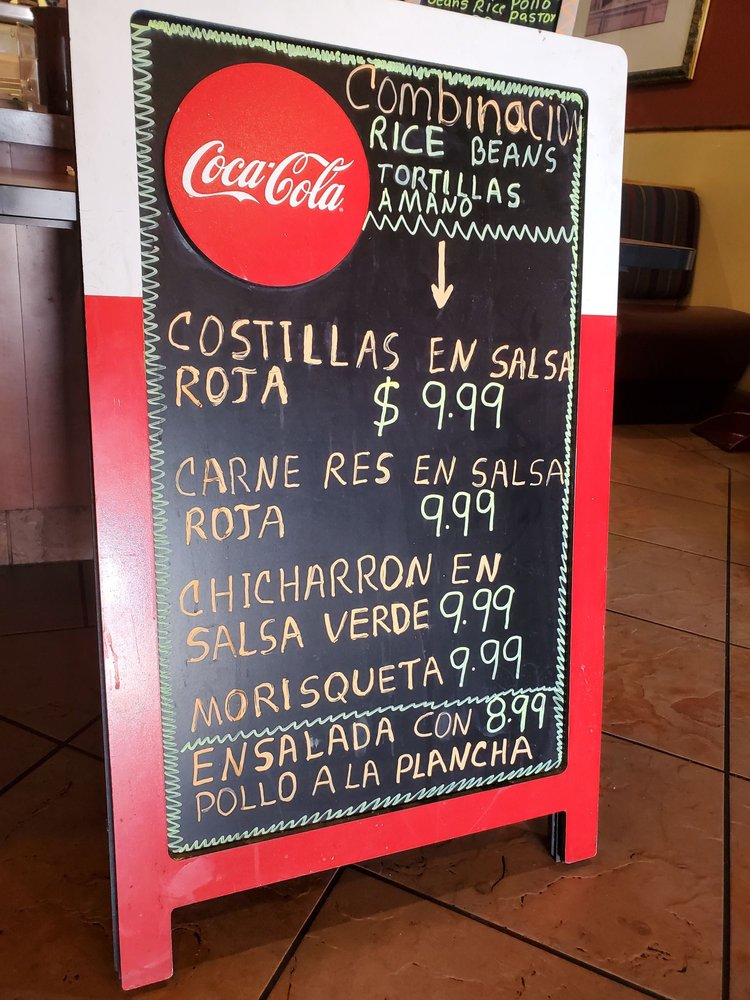 Beans Rice Pollo
pastor
Coca-Cola
Combinacion
RICE BEANS
TORTILLAS
A MANO
COSTILLAS EN SALSA
ROJA $ 9.99
CARNE RES EN SALSA
ROJA 9.99
CHICHARRON EN
SALSA VERDE 9.99
MORISQUETA 9.99
ENSALADA CON 8.99
POLLO A LA PLANCHA